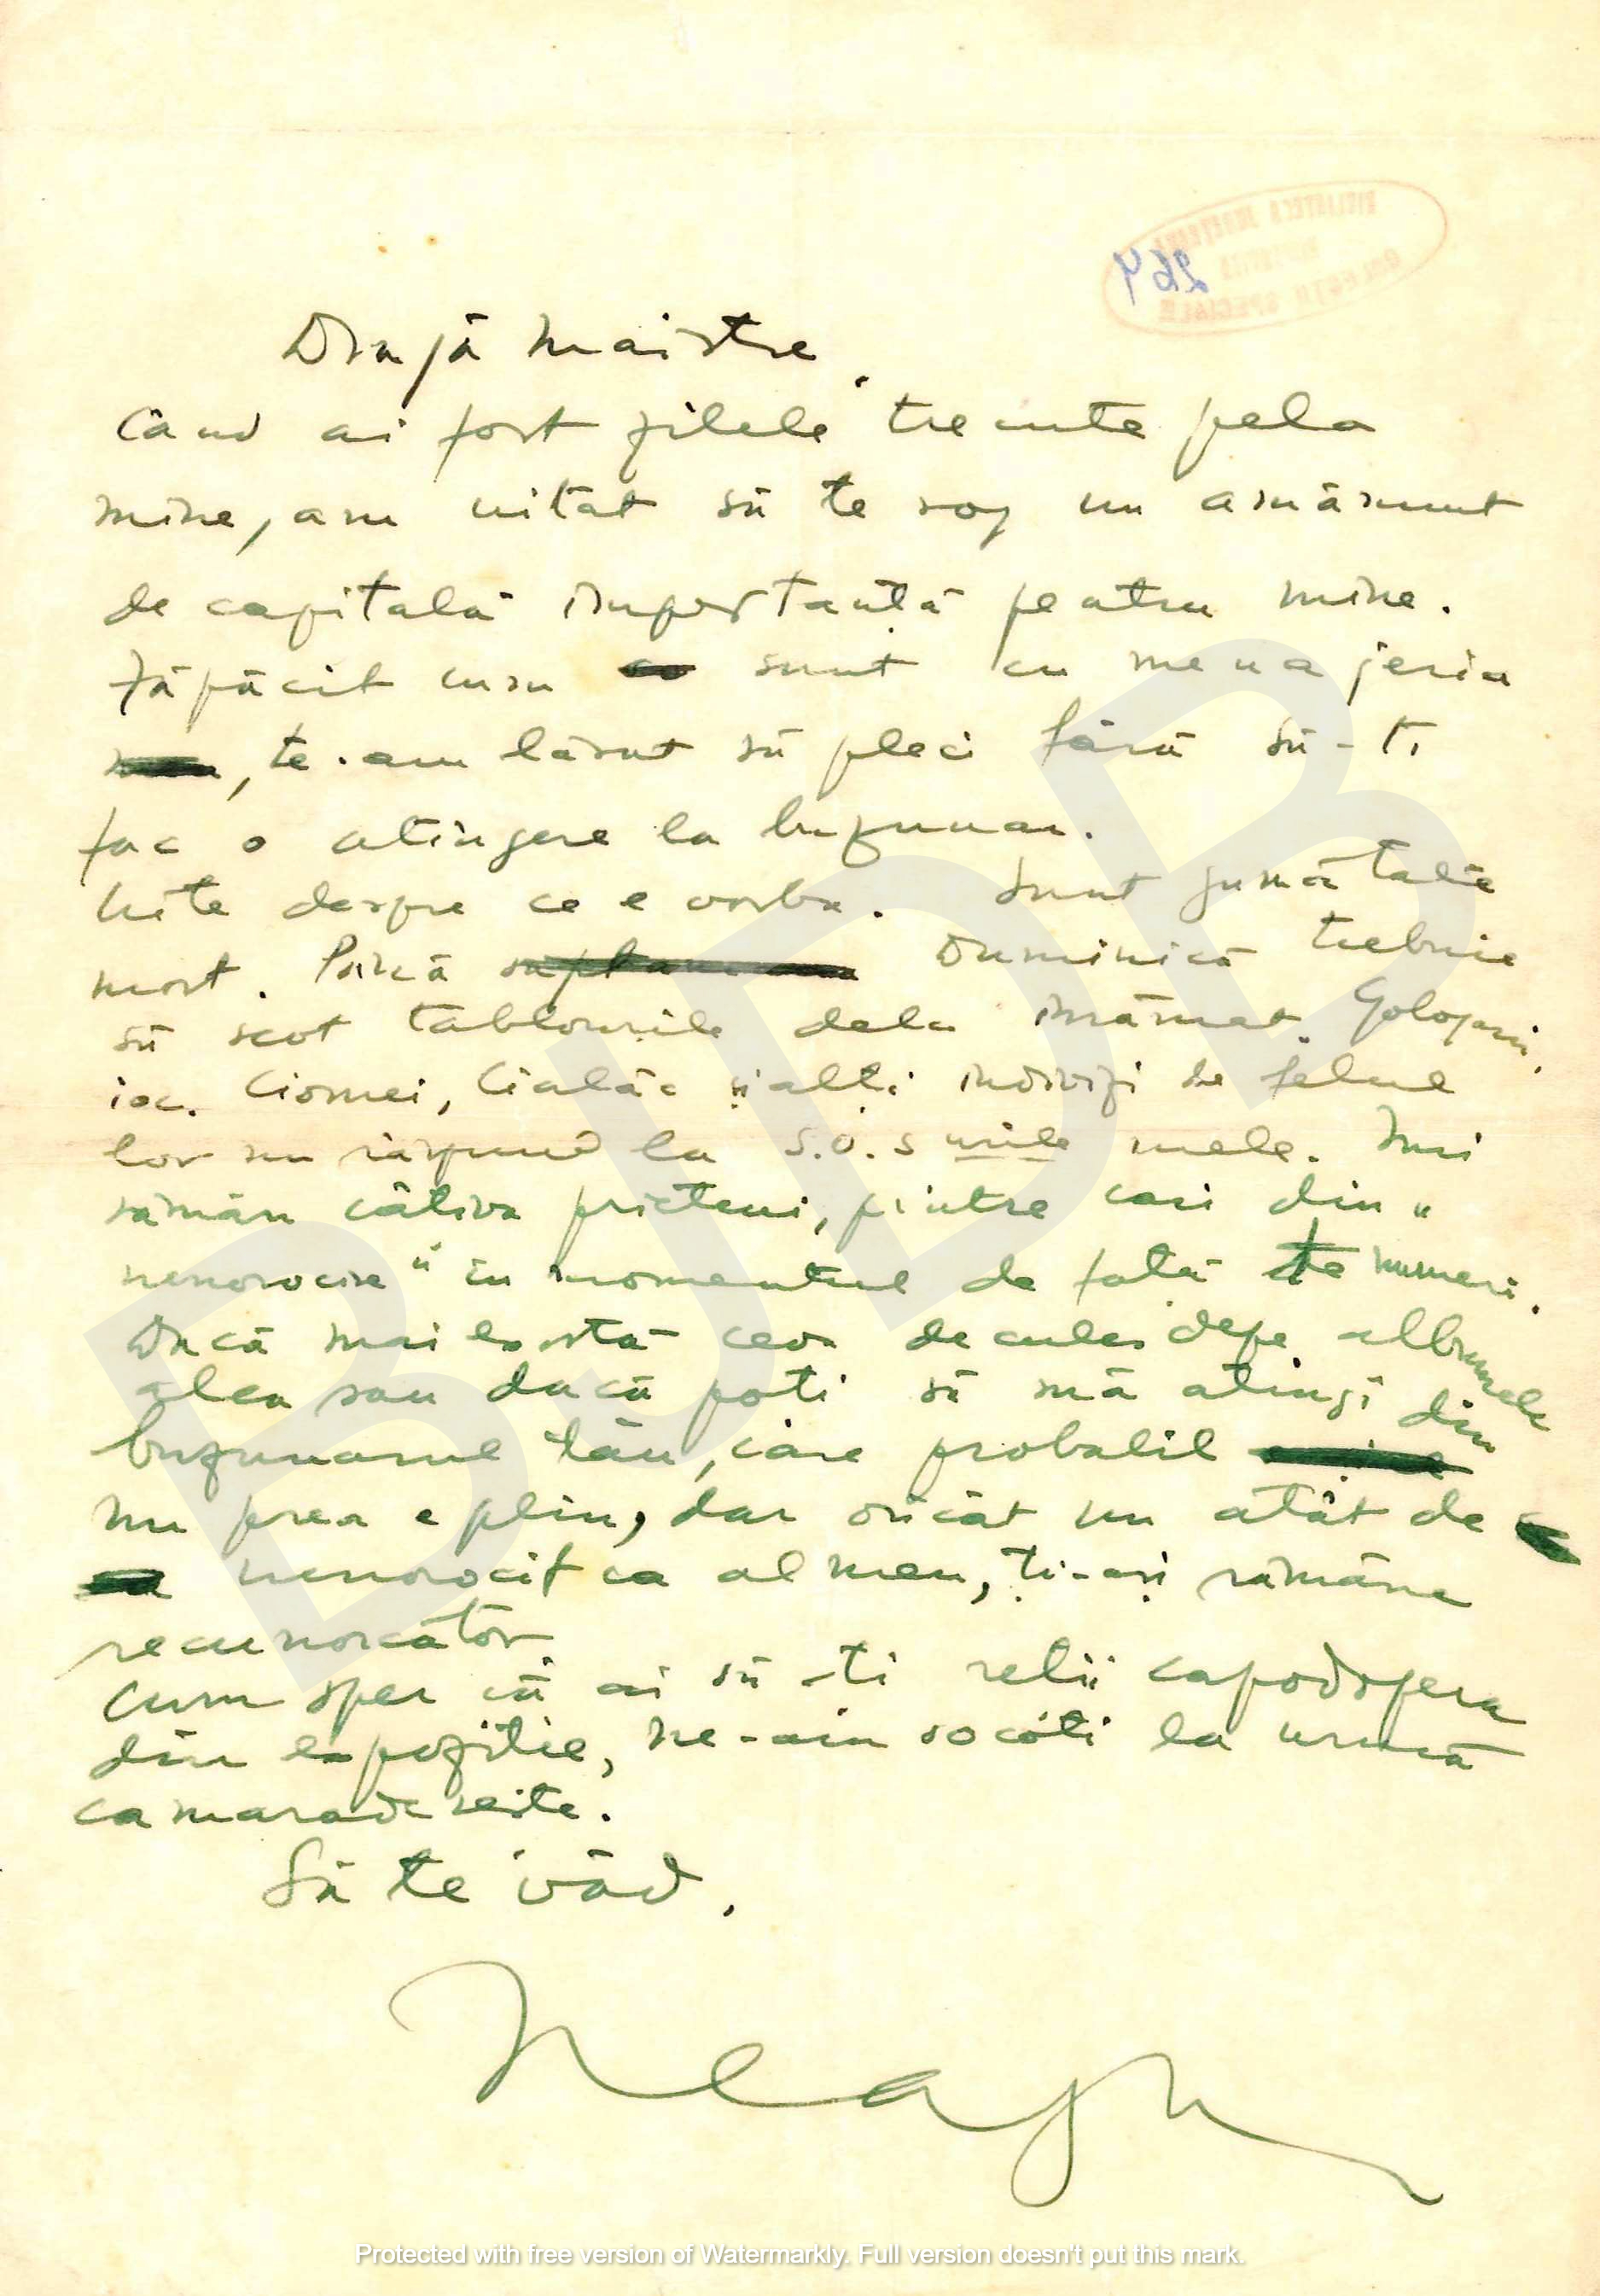 Dragă maistre
Când ai fost zilele trecute pela
mine, am uitat să te rog un amănunt
de capitală importanță pentru mine.
Zăpăcit cum sunt cu menajeria
, te-am lăsat să pleci fără să-ti
fac o atingere la buzunar.
Uite despre ce e vorba. Sunt jumătate
mort. Până Duminică trebuie
să scot tablourile dela înrămat.
Ciomei, și alți indivizi de felul
lor nu răspund la S.O.S urile mele. Imi
rămân câtiva prieteni, printre cari din „
nenorocire" în momentul de fată te numeri.
Dacă mai există ceva de cules depe albumele
alea sau dacă poti să mă atingi din
buzunarul tău, care probabil
nu prea e plin, dar oricât nu atât de
nenorocit ca al meu, ți-ași rămâne
recunoscător
Cum sper că ai să-ti retii capodopera
din expozitie, ne-am socoti la urmă
camaraderește.
Să te văd,
Neagu
264
BIBLIOTECA
COLECȚII SPECIALE
BJDB
Protected with free version of Watermarkly. Full version doesn't put this mark.